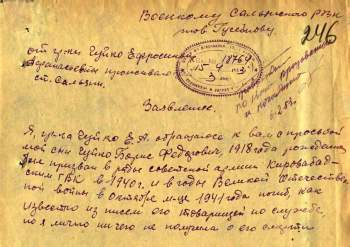 Военкому Сальянского РВК
тов Гусейнову.
246
от г-ки Чуйко Ефросинии
Афанасьевны проживающ
ст. Сальяны.
15 9
Заявление.
Я, г-ка Чуйко Е. А. обращаюсь к вам с просьбой
мой сын Чуйко Борис Федорович, 1918 года рождения
был призван в ряды советской армии Кировабад-
ским ГВК в 1940 г. и в годы Великой Отечествен
ной войны в октябре м-це 1941 года погиб, как
известно из писем его товарищей по службе,
но я лично ничего не получила о его смерти